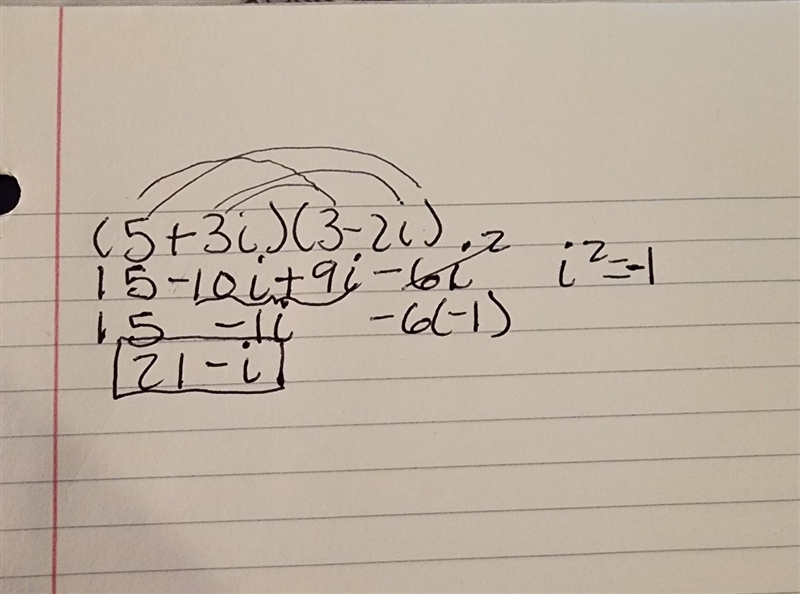 (5+3i)(3-2i)
15-10i+9i-6i² i²=-1
15 -1i -6(-1)
21-i